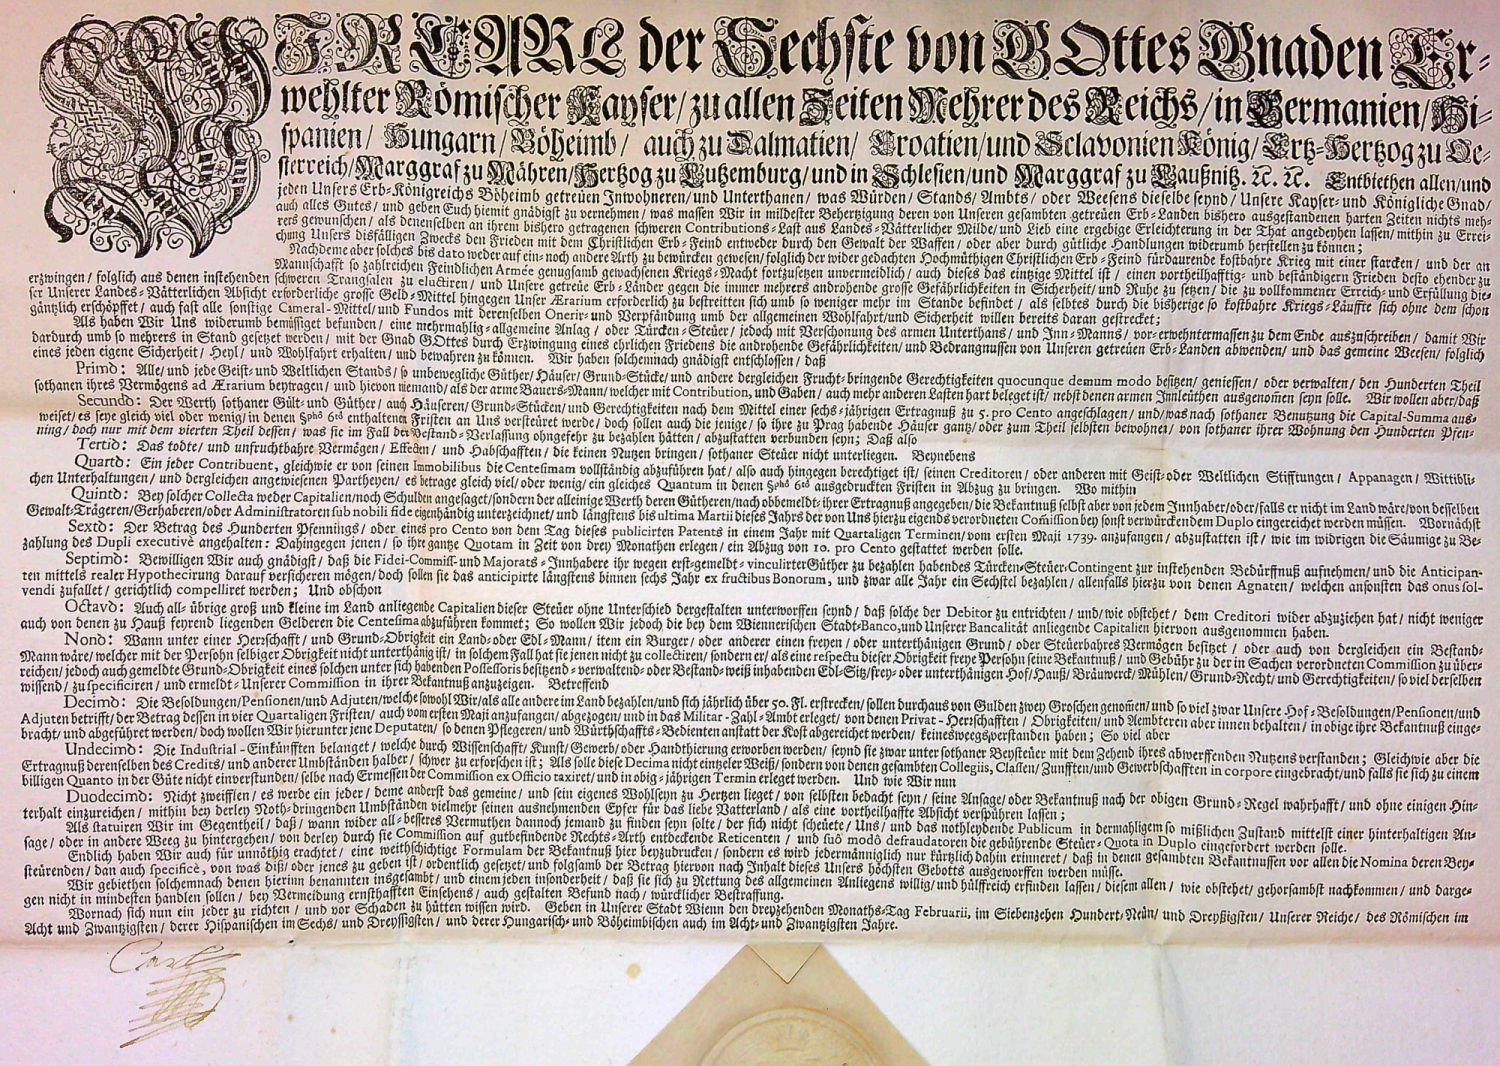 WIR CARL der Sechste von GOttes Gnaden Er-
wehlter Römischer Kayser/ zu allen Zeiten Mehrer des Reichs/ in Germanien/ Hi-
spanien/ Hungarn/ Böheimb/ auch zu Dalmatien/ Croatien/ und Sclavonien König/ Ertz-Hertzog zu Oe-
sterreich/ Marggraf zu Mähren/ Hertzog zu Lutzemburg/ und in Schlesien/ und Marggraf zu Laußnitz. ꝛc. ꝛc. Entbiethen allen/ und
jeden Unsers Erb-Königreichs Böheimb getreuen Inwohneren/ und Unterthanen/ was Würden/ Stands/ Ambts/ oder Weesens dieselbe seynd/ Unsere Kayser- und Königliche Gnad/
auch alles Gutes/ und geben Euch hiemit gnädigst zu vernehmen/ was massen Wir in mildester Behertzigung deren von Unseren gesambten getreuen Erb-Landen bishero ausgestandenen harten Zeiten nichts meh-
rers gewunschen/ als denenselben an ihrem bishero getragenen schweren Contributions-Last aus Landes-Vätterlicher Milde/ und Lieb eine ergebige Erleichterung in der That angedeyhen lassen/ mithin zu Errei-
chung Unsers disfälligen Zwecks den Frieden mit dem Christlichen Erb-Feind entweder durch den Gewalt der Waffen/ oder aber durch gütliche Handlungen widerumb herstellen zu können;
Nachdeme aber solches bis dato weder auf ein- noch andere Arth zu bewürcken gewesen/ folglich der wider gedachten Hochmüthigen Christlichen Erb-Feind fürdaurende kostbahre Krieg mit einer starcken/ und der an
Mannschafft so zahlreichen Feindlichen Armée genugsamb gewachsenen Kriegs-Macht fortzusetzen unvermeidlich/ auch dieses das eintzige Mittel ist/ einen vortheilhafftig- und beständigern Frieden desto ehender zu
erzwingen/ folglich aus denen instehenden schweren Trangsalen zu eluctiren/ und Unsere getreüe Erb-Länder gegen die immer mehrers androhende grosse Gefährlichkeiten in Sicherheit/ und Ruhe zu setzen/ die zu vollkommener Erreich- und Erfüllung die-
ser Unserer Landes-Vätterlichen Absicht erforderliche grosse Geld-Mittel hingegen Unser Ærarium erforderlich zu bestreitten sich umb so weniger mehr im Stande befindet/ als selbtes durch die bisherige so kostbahre Kriegs-Läuffte sich ohne dem schon
gäntzlich erschöpffet/ auch fast alle sonstige Cameral-Mittel/ und Fundos mit derenselben Onerir- und Verpfändung umb der allgemeinen Wohlfahrt/ und Sicherheit willen bereits daran gestrecket;
Als haben Wir Uns widerumb bemüssiget befunden/ eine mehrmahlig-allgemeine Anlag/ oder Türcken-Steüer/ jedoch mit Verschonung des armen Unterthans/ und Inn-Manns/ vor-erwehntermassen zu dem Ende auszuschreiben/ damit Wir
dardurch umb so mehrers in Stand gesetzet werden/ mit der Gnad GOttes durch Erzwingung eines ehrlichen Friedens die androhende Gefährlichkeiten/ und Bedrangnussen von Unseren getreuen Erb-Landen abwenden/ und das gemeine Weesen/ folglich
eines jeden eigene Sicherheit/ Heyl/ und Wohlfahrt erhalten/ und bewahren zu können. Wir haben solchemnach gnädigst entschlossen/ daß
Primò: Alle/ und jede Geist- und Weltlichen Stands/ so unbewegliche Güther/ Häuser/ Grund-Stücke/ und andere dergleichen Frucht-bringende Gerechtigkeiten quocunque demum modo besitzen/ geniessen/ oder verwalten/ den Hunderten Theil
sothanen ihres Vermögens ad Ærarium beytragen/ und hievon niemand/ als der arme Bauers-Mann/ welcher mit Contribution, und Gaben/ auch mehr anderen Lasten hart beleget ist/ nebst denen armen Innleüthen ausgenohmen seyn solle. Wir wollen aber/ daß
Secundò: Der Werth sothaner Gült- und Güther/ auch Häuseren/ Grund-Stücken/ und Gerechtigkeiten nach dem Mittel einer sechs-jährigen Ertragnuß zu 5. pro Cento angeschlagen/ und/ was nach sothaner Benutzung die Capital-Summa aus-
weiset/ es seye gleich viel oder wenig/ in denen §phô 6tô enthaltenen Fristen an Uns versteüret werde/ doch sollen auch die jenige/ so ihre zu Prag habende Häuser gantz/ oder zum Theil selbsten bewohnen/ von sothaner ihrer Wohnung den Hunderten Pfen-
ning/ doch nur mit dem vierten Theil dessen/ was sie im Fall der Bestand-Verlassung ohngefehr zu bezahlen hätten/ abzustatten verbunden seyn; Daß also
Tertiò: Das todte/ und unfruchtbahre Vermögen/ Effecten/ und Habschafften/ die keinen Nutzen bringen/ sothaner Steüer nicht unterliegen. Beynebens
Quartò: Ein jeder Contribuent, gleichwie er von seinen Immobilibus die Centesimam vollständig abzuführen hat/ also auch hingegen berechtiget ist/ seinen Creditoren/ oder anderen mit Geist- oder Weltlichen Stifftungen/ Appanagen/ Wittibli-
chen Unterhaltungen/ und dergleichen angewiesenen Partheyen/ es betrage gleich viel/ oder wenig/ ein gleiches Quantum in denen §phô 6tô ausgedruckten Fristen in Abzug zu bringen. Wo mithin
Quintò: Bey solcher Collecta weder Capitalien/ noch Schulden angesaget/ sondern der alleinige Werth deren Gütheren/ nach obbemeldt-ihrer Ertragnuß angegeben/ die Bekantnuß selbst aber von jedem Innhaber/ oder/ falls er nicht im Land wäre/ von desselben
Gewalt-Trägeren/ Gerhaberen/ oder Administratoren sub nobili fide eigenhändig unterzeichnet/ und längstens bis ultima Martii dieses Jahrs der von Uns hierzu eigends verordneten Commission bey sonst verwürckendem Duplo eingereichet werden müssen. Wornächst
Sextò: Der Betrag des Hunderten Pfennings/ oder eines pro Cento von dem Tag dieses publicirten Patents in einem Jahr mit Quartaligen Terminen/ vom ersten Maji 1739. anzufangen/ abzustatten ist/ wie im widrigen die Säumige zu Be-
zahlung des Dupli executivè angehalten: Dahingegen jenen/ so ihre gantze Quotam in Zeit von drey Monathen erlegen/ ein Abzug von 10. pro Cento gestattet werden solle.
Septimò: Bewilligen Wir auch gnädigst/ daß die Fidei-Commiss- und Majorats-Innhabere ihr wegen erst-gemeldt-vinculirter Güther zu bezahlen habendes Türcken-Steüer-Contingent zur instehenden Bedürffnuß aufnehmen/ und die Anticipan-
ten mittels realer Hypothecirung darauf versicheren mögen/ doch sollen sie das anticipirte längstens binnen sechs Jahr ex fructibus Bonorum, und zwar alle Jahr ein Sechstel bezahlen/ allenfalls hierzu von denen Agnaten/ welchen ansonsten das onus sol-
vendi zufallet/ gerichtlich compelliret werden; Und obschon
Octavò: Auch all-übrige groß und kleine im Land anliegende Capitalien dieser Steüer ohne Unterschied dergestalten unterworffen seynd/ daß solche der Debitor zu entrichten/ und/ wie obstehet/ dem Creditori wider abzuziehen hat/ nicht weniger
auch von denen zu Hauß feyrend liegenden Gelderen die Centesima abzuführen kommet; So wollen Wir jedoch die bey dem Wiennerischen Stadt-Banco, und Unserer Bancalität anliegende Capitalien hiervon ausgenommen haben.
Nonò: Wann unter einer Herrschafft/ und Grund-Obrigkeit ein Land- oder Edl-Mann/ item ein Burger/ oder anderer einen freyen/ oder unterthänigen Grund/ oder Steürbahres Vermögen besitzet/ oder auch von dergleichen ein Bestand-
Mann wäre/ welcher mit der Persohn selbiger Obrigkeit nicht unterthänig ist/ in solchem Fall hat sie jenen nicht zu collectiren/ sondern er/ als eine respectu dieser Obrigkeit freye Persohn seine Bekantnuß/ und Gebühr zu der in Sachen verordneten Commission zu über-
reichen/ jedoch auch gemeldte Grund-Obrigkeit eines solchen unter sich habenden Possessoris besitzend-verwaltend- oder Bestand-weiß inhabenden Edl-Sitz/ frey- oder unterthänigen Hof/ Hauß/ Bräuwerck/ Mühlen/ Grund-Recht/ und Gerechtigkeiten/ so viel derselben
wissend/ zu specificiren/ und ermeldt-Unserer Commission in ihrer Bekantnuß anzuzeigen. Betreffend
Decimò: Die Besoldungen/ Pensionen/ und Adjuten/ welche sowohl Wir/ als alle andere im Land bezahlen/ und sich jährlich über 50. Fl. erstrecken/ sollen durchaus von Gulden zwey Groschen genommen/ und so viel zwar Unsere Hof-Besoldungen/ Pensionen/ und
Adjuten betrifft/ der Betrag dessen in vier Quartaligen Fristen/ auch vom ersten Maji anzufangen/ abgezogen/ und in das Militar-Zahl-Ambt erleget/ von denen Privat-Herrschafften/ Obrigkeiten/ und Aembteren aber innen behalten/ in obige ihre Bekantnuß einge-
bracht/ und abgeführet werden/ doch wollen Wir hierunter jene Deputaten/ so denen Pflegeren/ und Würthschaffts-Bedienten anstatt der Kost abgereichet werden/ keineswegs verstanden haben; So viel aber
Undecimò: Die Industrial-Einkünfften belanget/ welche durch Wissenschafft/ Kunst/ Gewerb/ oder Handthierung erworben werden/ seynd sie zwar unter sothaner Beysteüer mit dem Zehend ihres abwerffenden Nutzens verstanden; Gleichwie aber die
Ertragnuß derenselben des Credits/ und anderer Umständen halber/ schwer zu erforschen ist; Als solle diese Decima nicht eintzeler Weiß/ sondern von denen gesambten Collegiis, Classen/ Zunfften/ und Gewerbschafften in corpore eingebracht/ und falls sie sich zu einem
billigen Quanto in der Güte nicht einverstunden/ selbe nach Ermessen der Commission ex Officio taxiret/ und in obig-jährigen Termin erleget werden. Und wie Wir nun
Duodecimò: Nicht zweifflen/ es werde ein jeder/ deme anderst das gemeine/ und sein eigenes Wohlseyn zu Hertzen lieget/ von selbsten bedacht seyn/ seine Ansage/ oder Bekantnuß nach der obigen Grund-Regel wahrhafft/ und ohne einigen Hin-
terhalt einzureichen/ mithin bey derley Noth-dringenden Umbständen vielmehr seinen ausnehmenden Eyfer für das liebe Vatterland/ als eine vortheilhaffte Absicht verspühren lassen;
Als statuiren Wir im Gegentheil/ daß/ wann wider all-besseres Vermuthen dannoch jemand zu finden seyn solte/ der sich nicht scheüete/ Uns/ und das nothleydende Publicum in dermahligem so mißlichen Zustand mittelst einer hinterhaltigen An-
sage/ oder in andere Weeg zu hintergehen/ von derley durch sie Commission auf gutbefindende Rechts-Arth entdeckende Reticenten/ und suô modô defraudatoren die gebührende Steüer-Quota in Duplo eingefordert werden solle.
Endlich haben Wir auch für unnöthig erachtet/ eine weithschichtige Formulam der Bekantnuß hier beyzudrucken/ sondern es wird jedermänniglich nur kürtzlich dahin erinneret/ daß in denen gesambten Bekantnussen vor allen die Nomina deren Bey-
steürenden/ dan auch specificè, von was diß/ oder jenes zu geben ist/ ordentlich gesetzet/ und folgsamb der Betrag hiervon nach Inhalt dieses Unsers höchsten Gebotts ausgeworffen werden müsse.
Wir gebiethen solchemnach denen hierinn benannten insgesambt/ und einem jeden insonderheit/ daß sie sich zu Rettung des allgemeinen Anliegens willig/ und hülffreich erfinden lassen/ diesem allen/ wie obstehet/ gehorsambst nachkommen/ und darge-
gen nicht in mindesten handlen sollen/ bey Vermeidung ernsthafften Einsehens/ auch gestalten Befund nach/ würcklicher Bestraffung.
Wornach sich nun ein jeder zu richten/ und vor Schaden zu hütten wissen wird. Geben in Unserer Stadt Wienn den dreyzehenden Monaths-Tag Februarii, im Siebenzehen Hundert/ Neün/ und Dreyßigisten/ Unserer Reiche/ des Römischen im
Acht und Zwantzigsten/ derer Hispanischen im Sechs/ und Dreyssigsten/ und derer Hungarisch- und Böheimbischen auch im Acht- und Zwantzigsten Jahre.
Carl